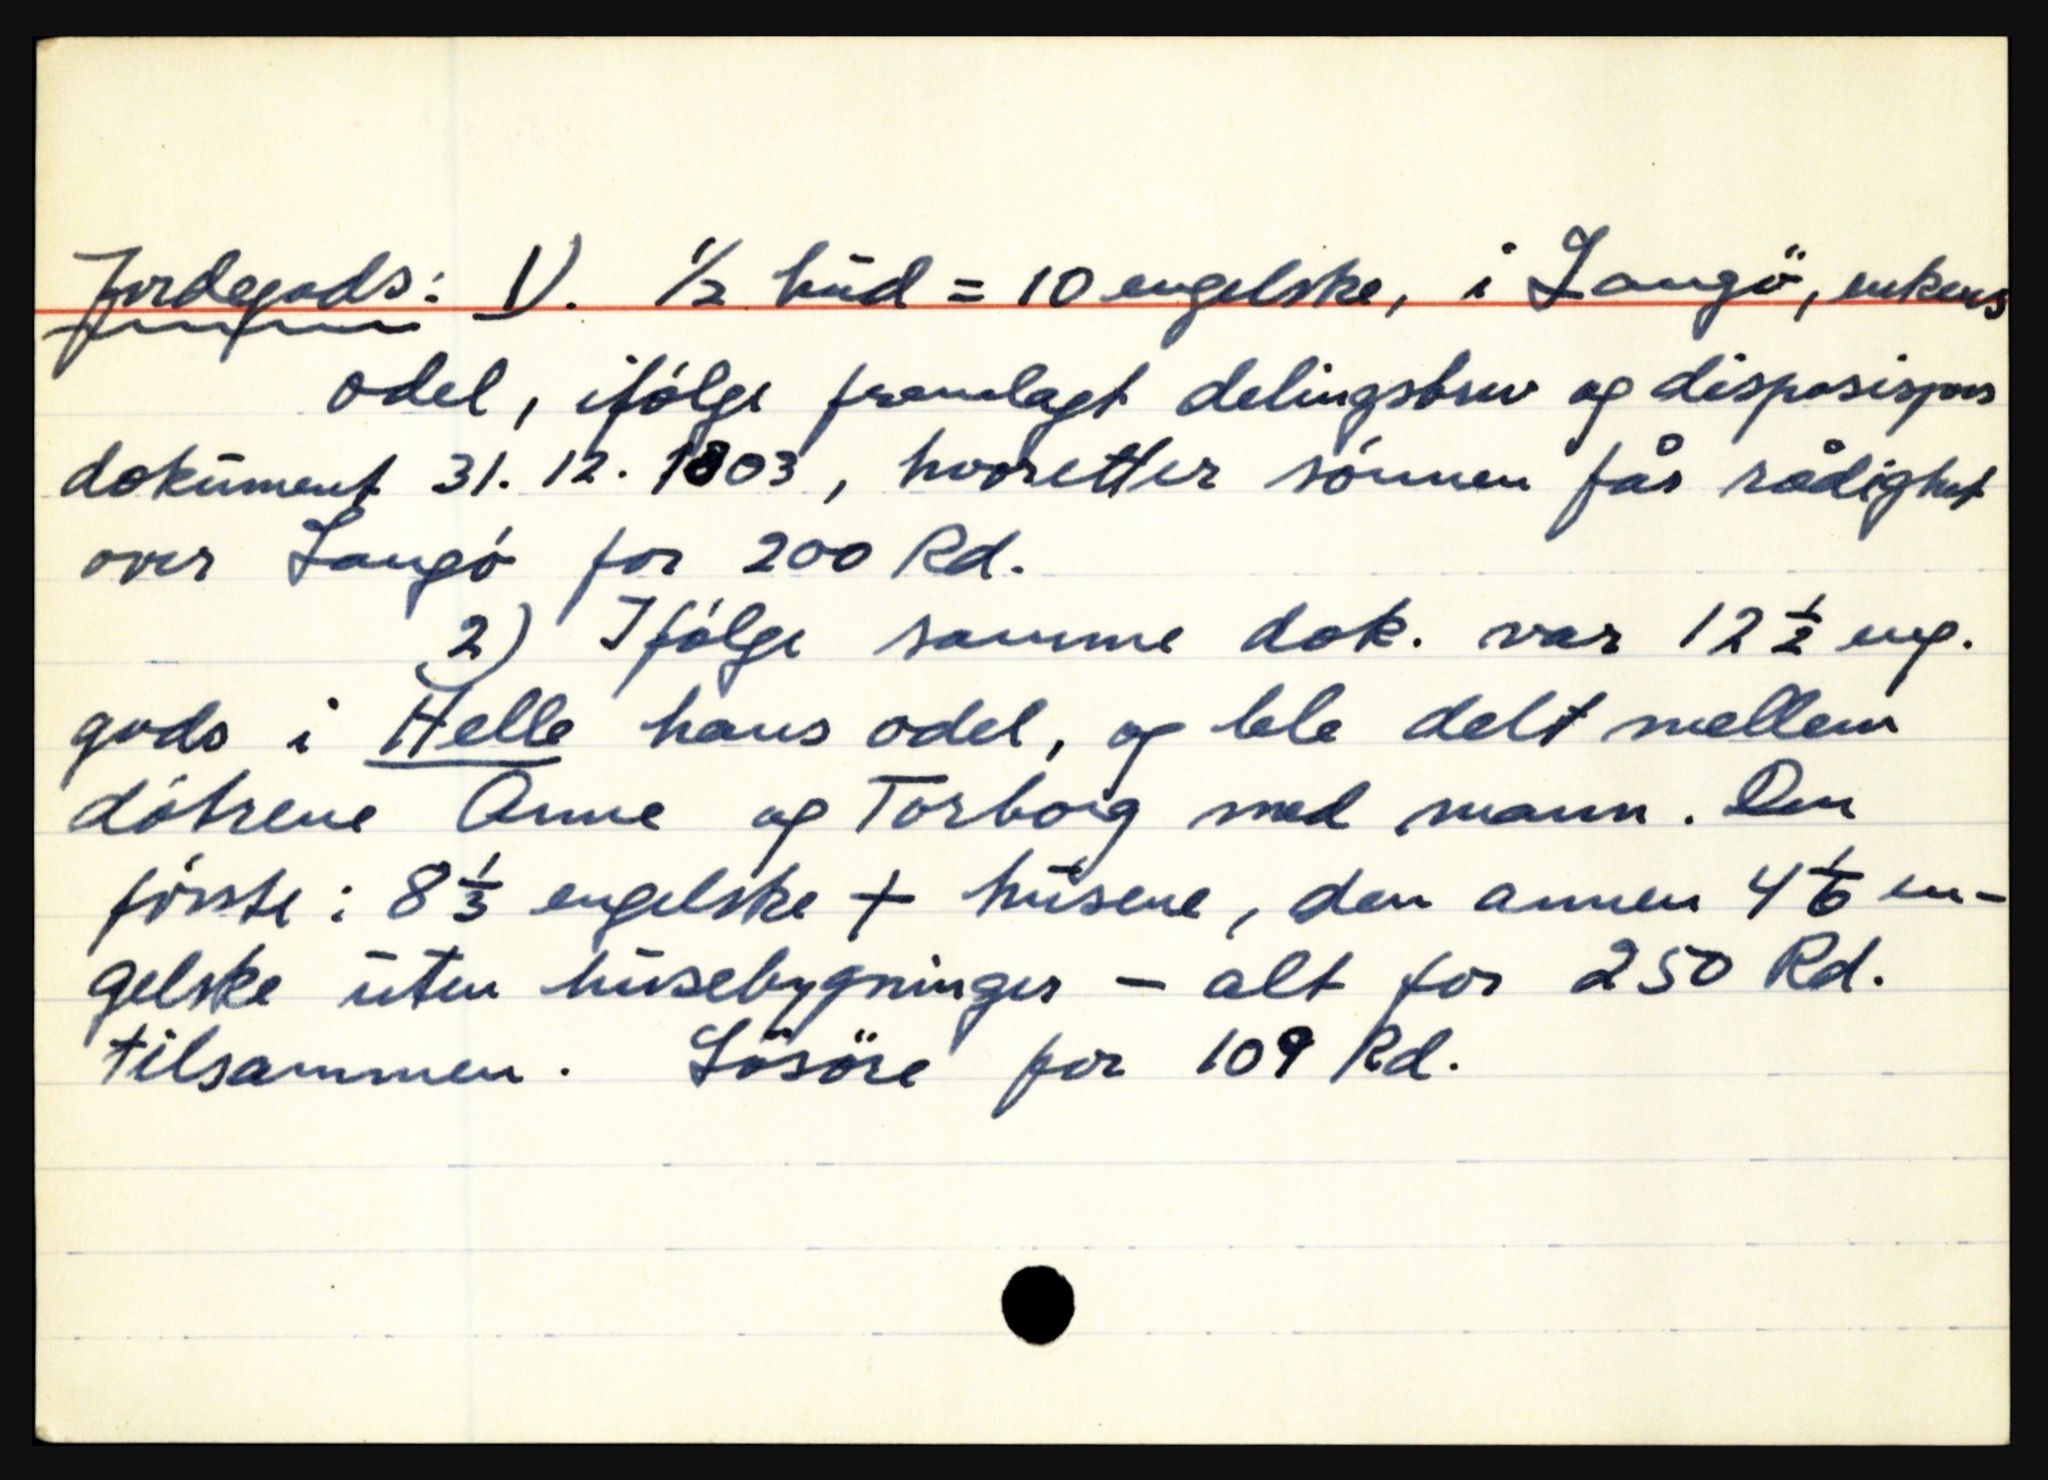 Jordegods: 1). 1/2 hud = 10 engelske, i Langö, enkens
odel, ifölge fremlagt delingsbrev og disposisjons
dokument 31. 12. 1803, hvoretter sönnen får rådighet
over Langö for 200 Rd.
2) Ifölge samme dok. var 12 1/2 eng.
gods i Helle hans odel, og ble delt mellem
dötrene Anne og Torborg med mann. Den
förste: 8 1/3 engelske + husene, den annen 4 1/6 en-
gelske uten husebygninger - alt for 250 Rd.
tilsammen. Lösöre for 109 Rd.